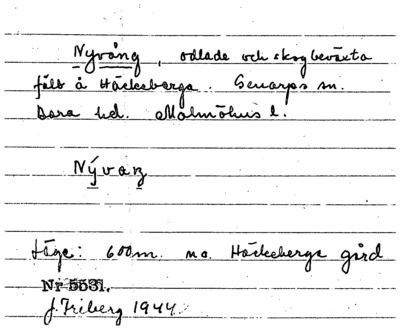 Nyvång, odlade och skogbeväxta
fält å Häckeberga. Genarps sn.
Bara hd. Malmöhus l.
Nývaŋ
Läge: 600 m. no. Häckeberga gård
Nr 5531.
J. Friberg 1944.